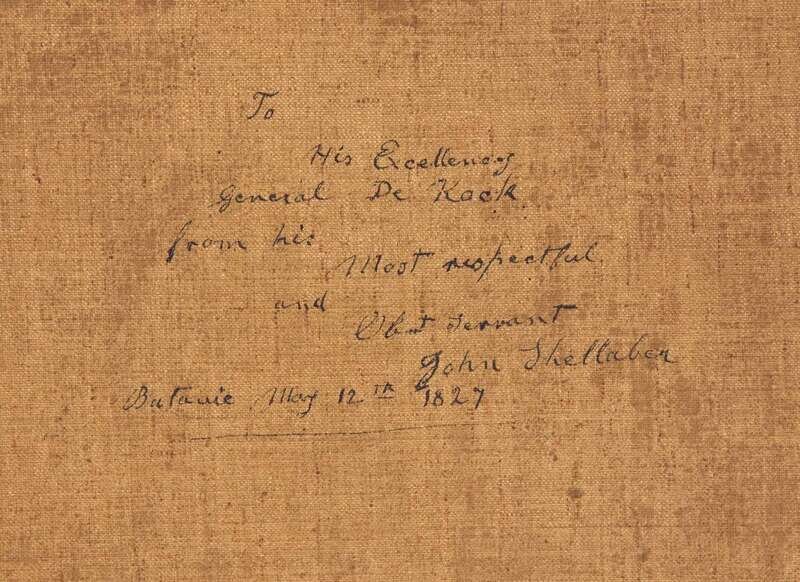 To
His Excellency
General De Kock
from his
Most respectful
and
Obt servant
John Shellaber
Batavie May 12TH 1827